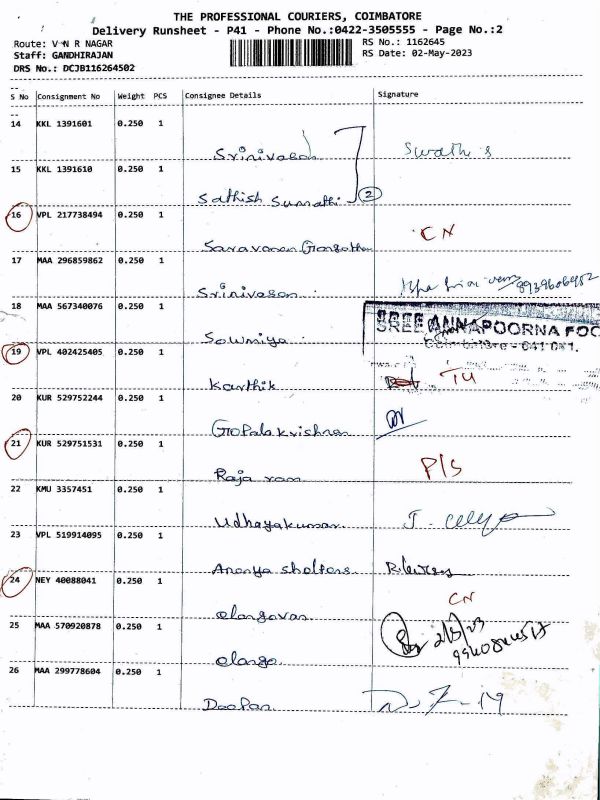 THE PROFESSIONAL COURIERS, COIMBATORE
Delivery Runsheet - P41 - Phone No.:0422-3505555 - Page No.:2
Route: V N R NAGAR
RS No.: 1162645
Staff: GANDHIRAJAN
RS Date: 02-May-2023
DRS No.: DCJB116264502
S No Consignment No Weight PCS Consignee Details Signature
14 KKL 1391601 0.250 1
Srinivasan Swathi s
15 KKL 1391610 0.250 1
Sathish Sumathi 2
16 VPL 217738494 0.250 1
Saravanan CN
17 MAA 296859862 0.250 1
Srinivasan
18 MAA 567340076 0.250 1
SREE ANNAPOORNA FOO
Sowmiya Coimbatore - 641 041.
19 VPL 402425405 0.250 1
Karthik
20 KUR 529752244 0.250 1
Gopalakrishnan
21 KUR 529751531 0.250 1
Raja ram P/S
22 KMU 3357451 0.250 1
Udhayakumar
23 VPL 519914095 0.250 1
Ananya
24 NEY 40088041 0.250 1
elangovan CN
25 MAA 570920878 0.250 1
2/5/23
elango
26 MAA 299778604 0.250 1